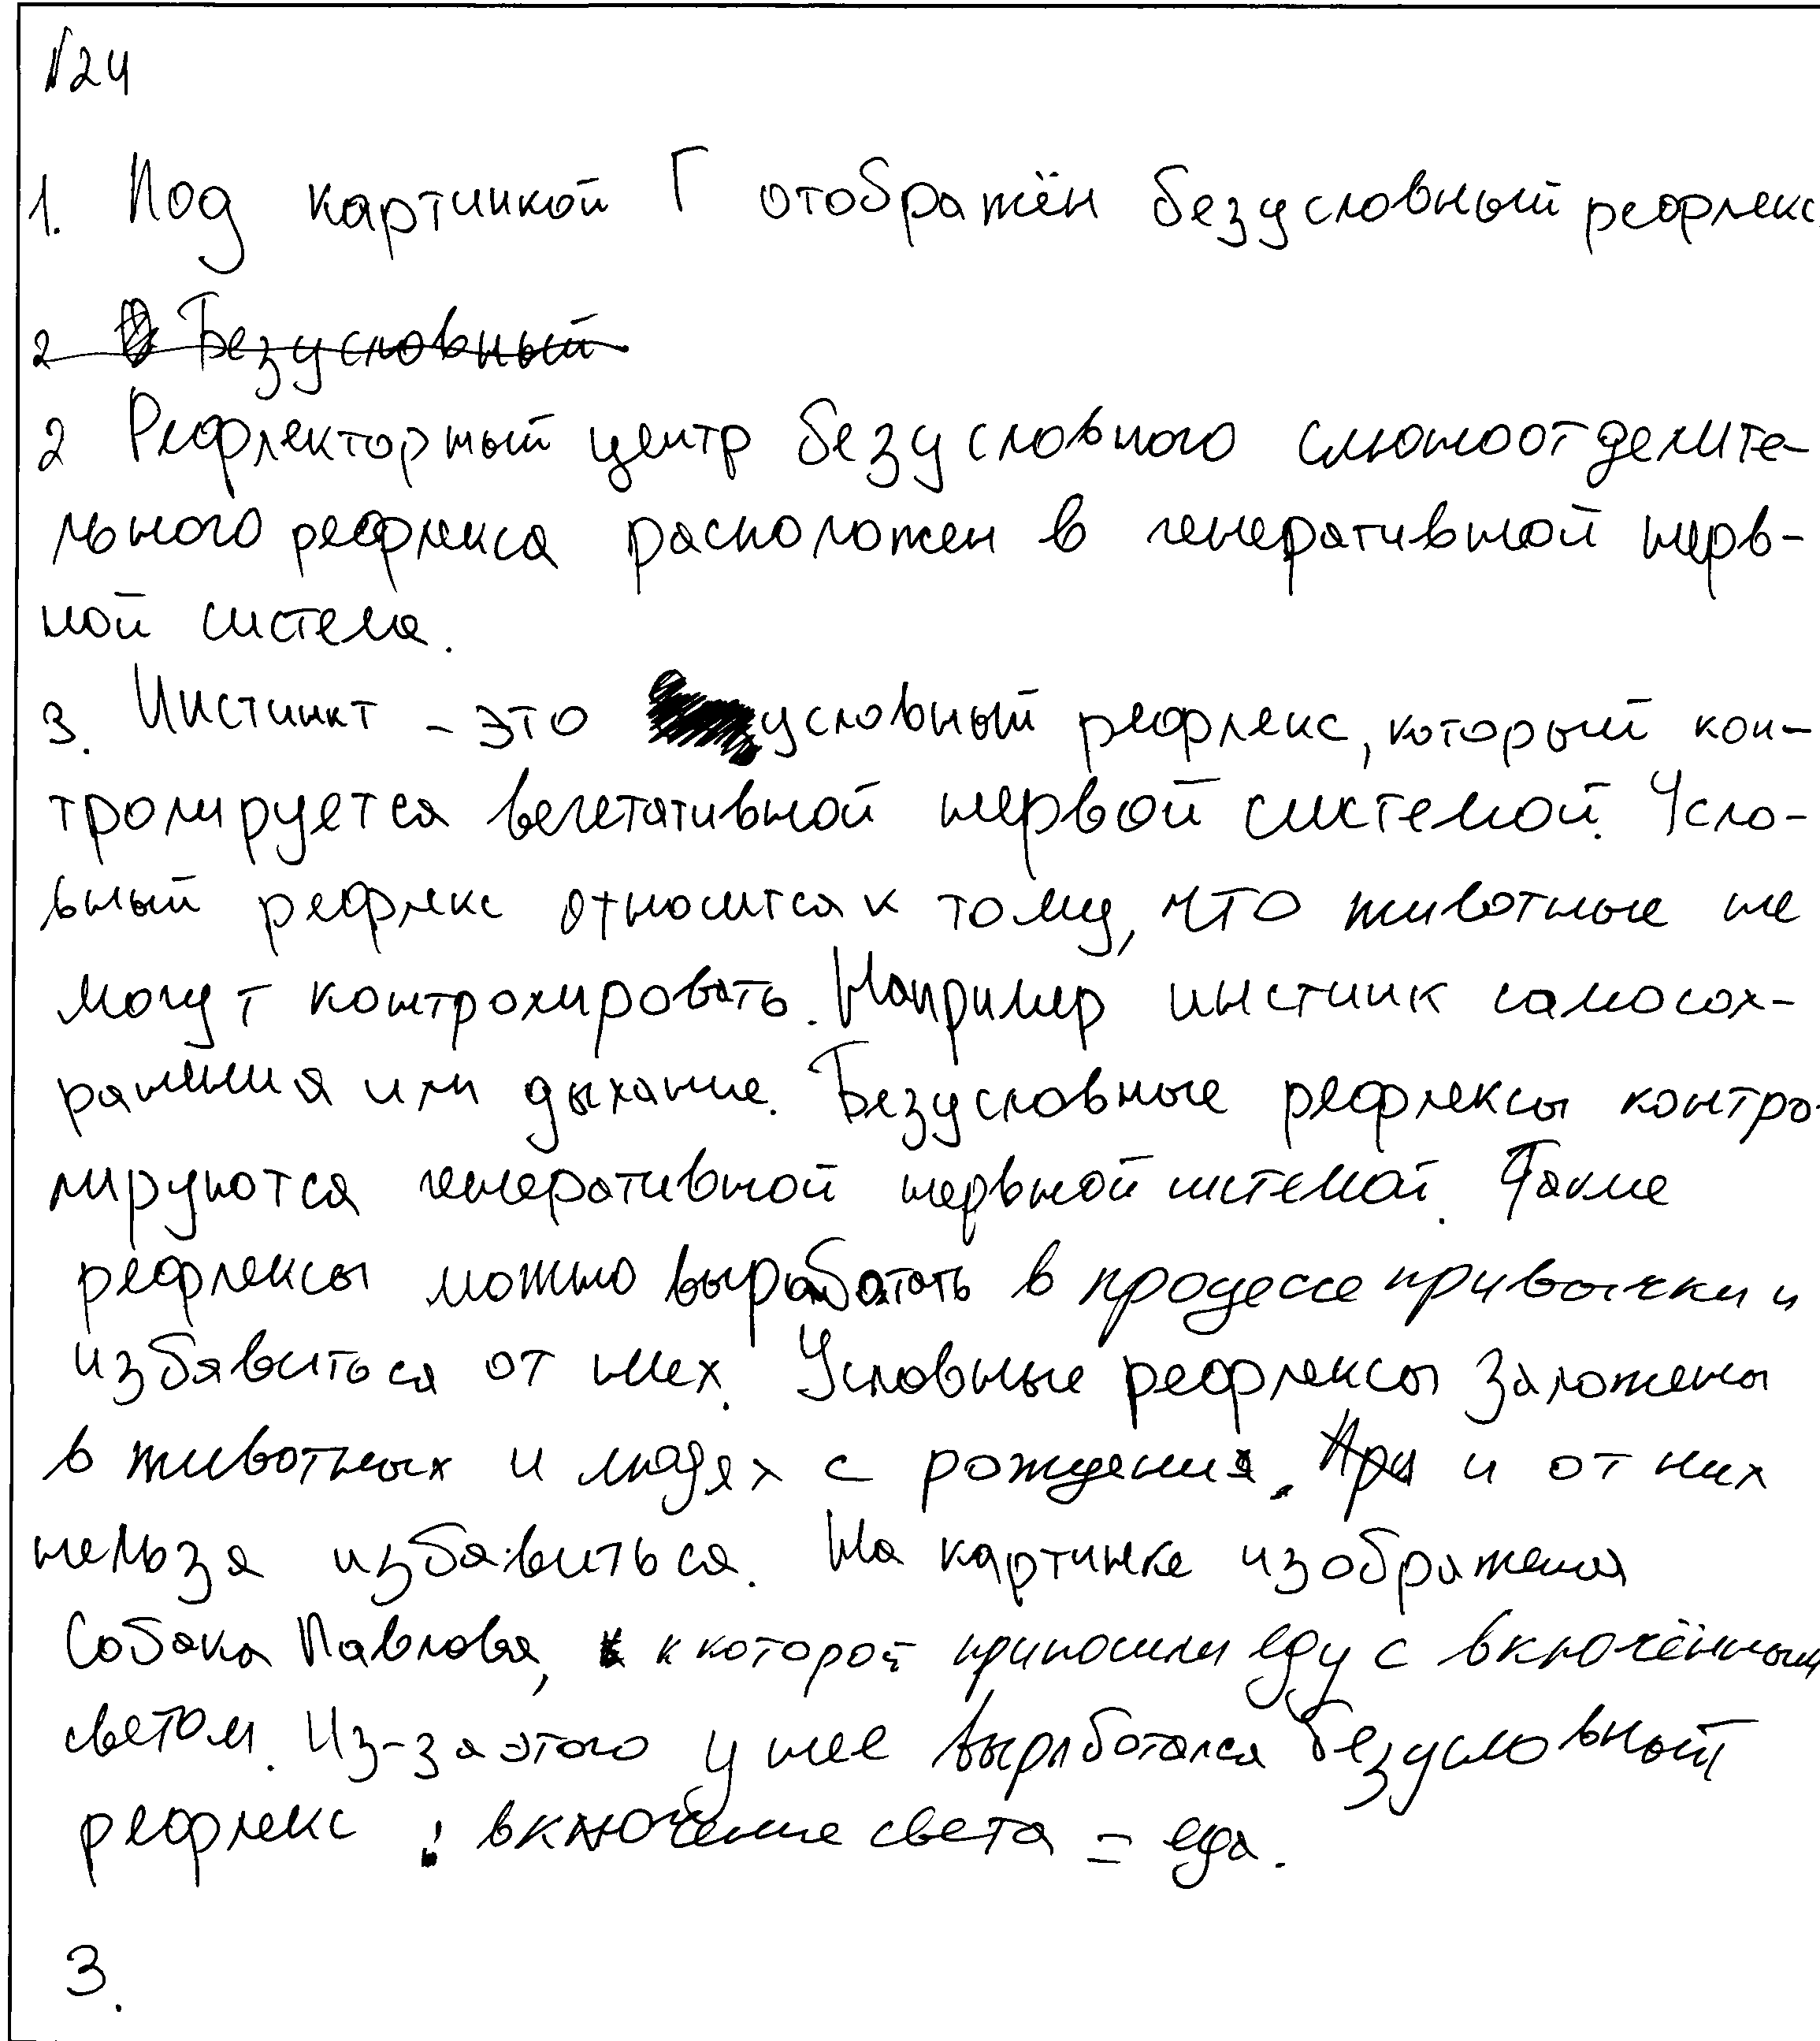 №24
1. Под картинкой Г отображён безусловный рефлекс.
2 Безусловный
2 Рефлекторный центр безусловного слюноотделите-
льного рефлекса расположен в генеративной нерв-
ной система.
3. Инстинкт - это условный рефлекс, который кон-
тролируется вегетативной нервой системой. Усло-
вный рефлекс относится к тому, что животные не
могут контролировать. Например инстинк самосох-
ранения или дыхание. Безусловные рефлексы контро-
лируются генеративной нервной системой. Такие
рефлексы можно выработать в процессе привычки и
избавиться от них. Условные рефлексы заложены
в животных и людях с рождения. При и от них
нельзя избавиться. На картинке изображена
Собака Павлова, к которой приносили еду с включённым
светом. Из-за этого у нее выработался безусловный
рефлекс : включение света = еда.
3.